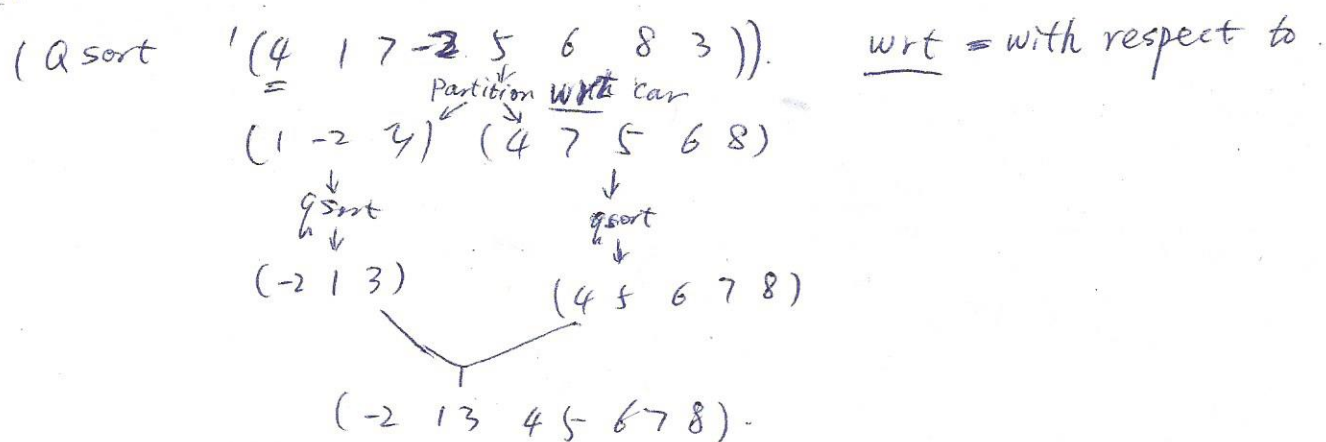 (Qsort '(4 1 7 -2 5 6 8 3)). wrt = with respect to.
Partition wrt car
(1 -2 3) (4 7 5 6 8)
qsort qsort
(-2 1 3) (4 5 6 7 8)
(-2 1 3 4 5 6 7 8).